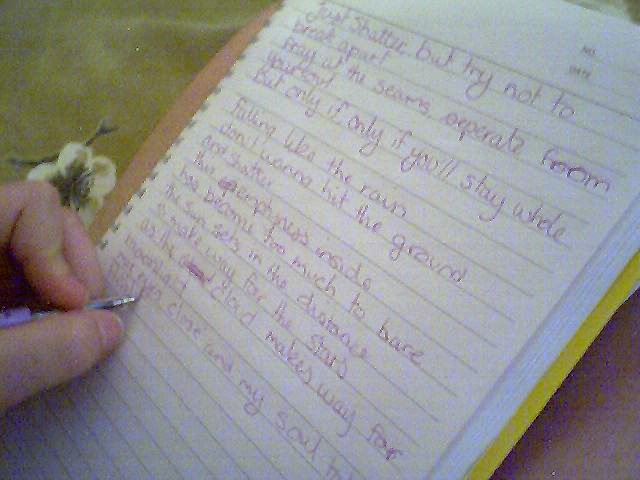 NO.
DATE
Just Shatter, but try not to
break apart
Fray at the seams, seperate from
yourself
But only if only if you'll stay whole
Falling like the rain
don't wanna hit the ground
and shatter
this emptyness inside
has become too much to bare
The sun sets in the distance
to make way for the stars
as the cloud makes way for
moonlight
my eyes close and my soul